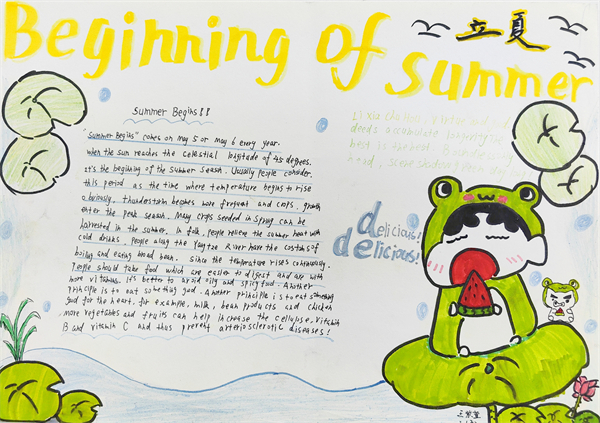 Beginning of summer
立夏
Summer Begins!!
"Summer Begins" comes on May 5 or May 6 every year.
when the sun reaches the celestial longitude of 45 degrees.
It's the beginning of the summer season. Usually people consider
this period as the time where temperature begins to rise
obviously, thunderstorm becomes more frequent and crops growth
enter the peak season. Many crops seeded in spring can be
harvested in the summer. In folk, people relieve the summer heat with
cold drinks. people along the Yangtze River have the customs of
boiling and eating broad bean. Since the temperature rises continuously,
people should take food which are easier to digest and are with
more vitamins. it's better to avoid oily and spicy food. Another
principle is to eat something good. Another principle is to eat something
good for the heart, for example, milk, bean products and chicken
more vegetables and fruits can help increase the cellulose, vitamin
B and vitamin C and thus prevent arteriosclerotic diseases!
Li xia
deeds accumulate
heat is
delicious!
delicious!